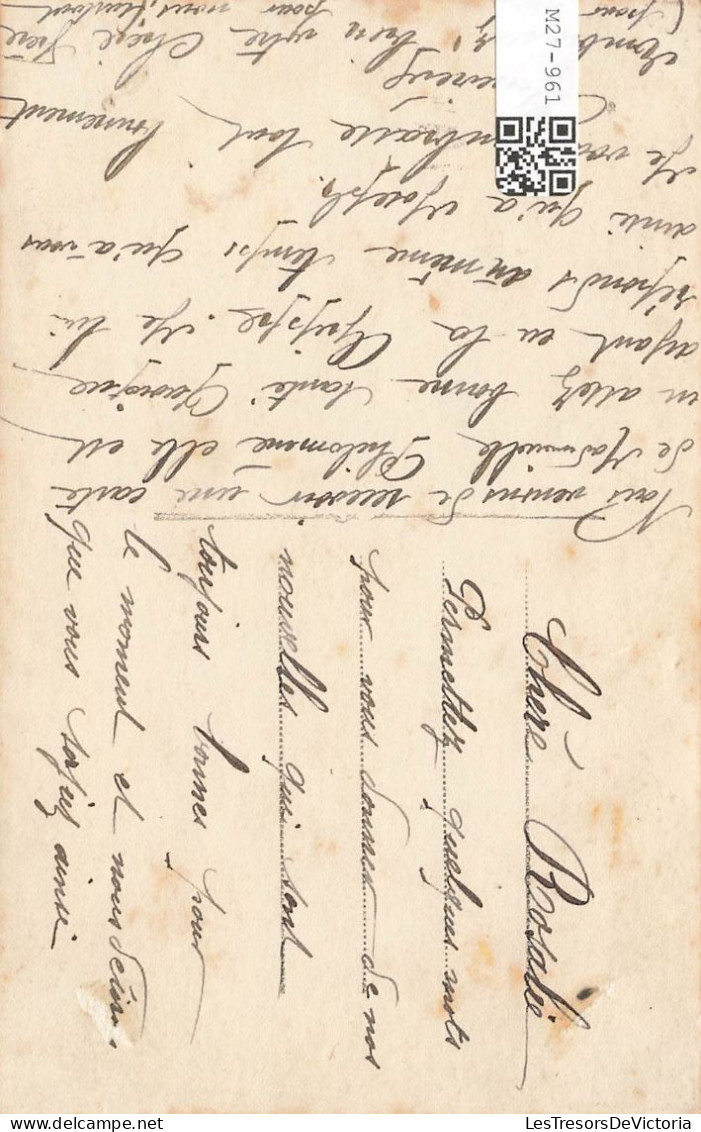 Chère Rosalie
Permettez quelques mots
pour vous donner de nos
nouvelles qui sont
toujours bonnes pour
le moment et nous désirons
que vous soyiez ainsi
Nous venons de recevoir une carte
de Mademoiselle Philomène elle est
en assez bonne santé
ayant eu la Grippe. Je lui
réponds en même temps qu'a vous
ainsi qu'a Joseph.
Je vous embrasse tout
bien votre Chère
pour nous
M27-961
LesTresorsDeVictoria